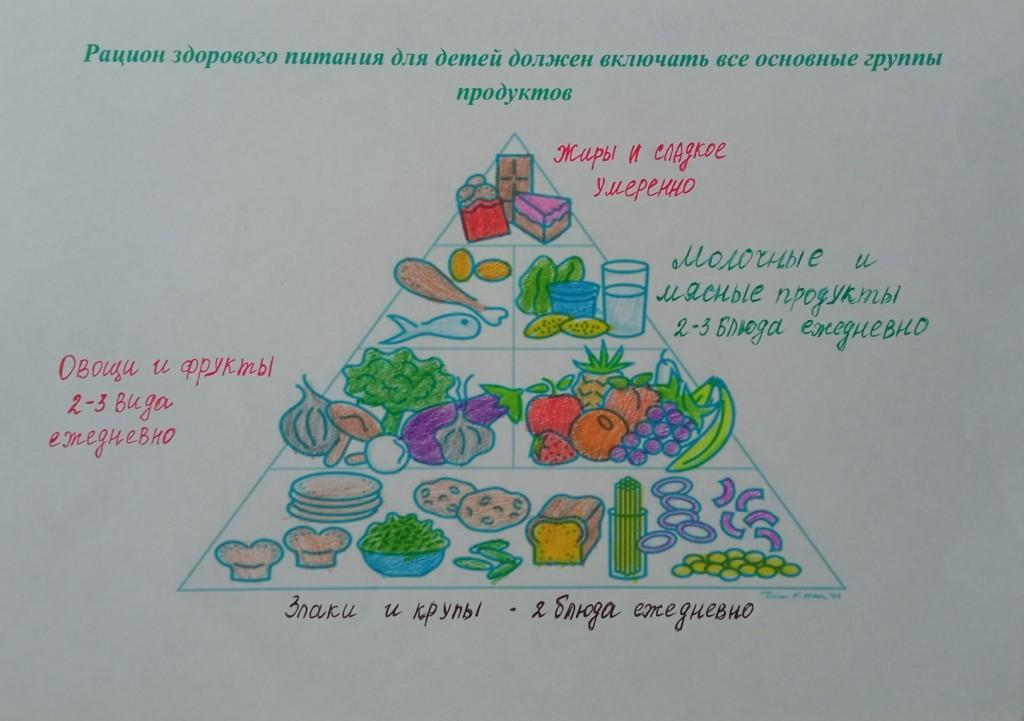 Рацион здорового питания для детей должен включать все основные группы
продуктов
Жиры и сладкое
умеренно
Молочные и
мясные продукты
2-3 блюда ежедневно
Овощи и фрукты
2-3 вида
ежедневно
Злаки и крупы - 2 блюда ежедневно